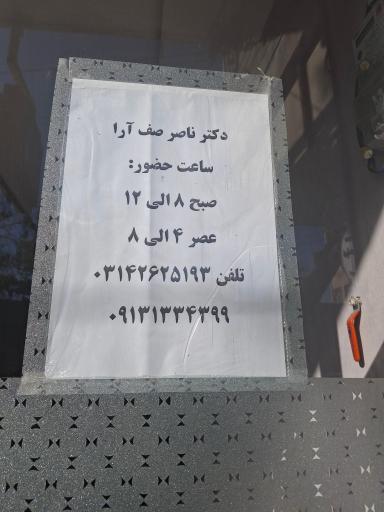 دکتر ناصر صف آرا
ساعت حضور:
صبح ۸ الی ۱۲
عصر ۴ الی ۸
تلفن ۰۳۱۴۲۶۲۵۱۹۳
۰۹۱۳۱۳۳۴۳۹۹